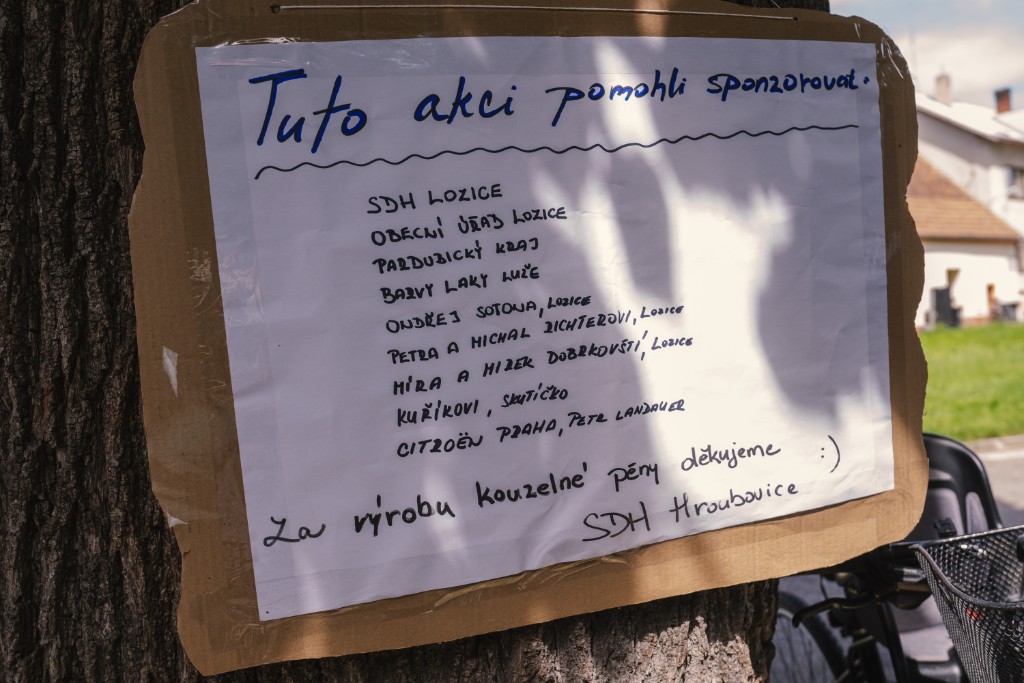 Tuto akci pomohli sponzorovat.
SDH LOZICE
OBECNÍ ÚŘAD LOZICE
PARDUBICKÝ KRAJ
BARVY LAKY LUŽE
ONDŘEJ SOTONA, LOZICE
PETRA A MICHAL RICHTEROVI, LOZICE
MÍRA A MIREK DOBRKOVŠTÍ, LOZICE
KUŘÍKOVI, SKUTÍČKO
CITROËN PRAHA, PETR LANDAUER
Za výrobu kouzelné pěny děkujeme :)
SDH Hroubovice